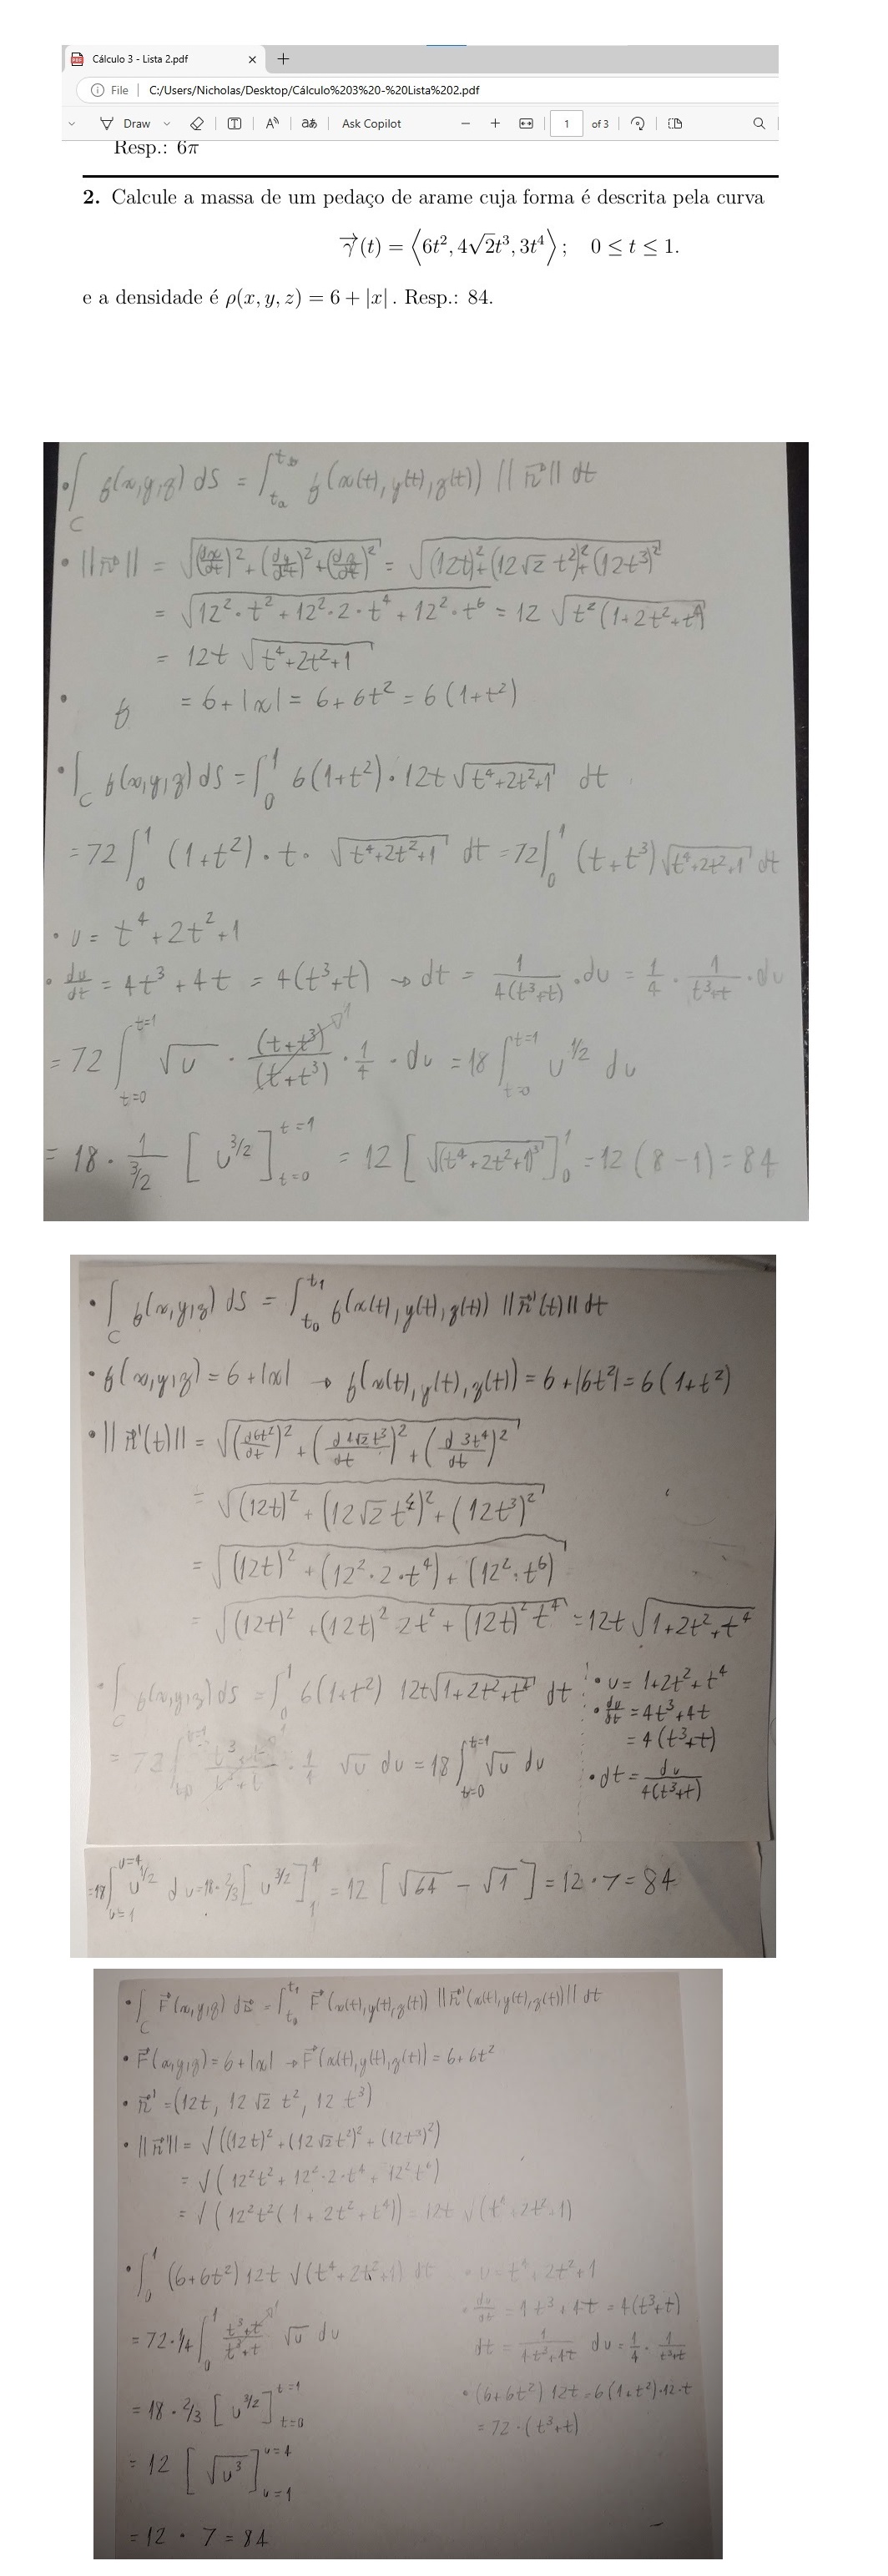 Cálculo 3 - Lista 2.pdf
File C:/Users/Nicholas/Desktop/Cálculo%203%20-%20Lista%202.pdf
Draw aあ Ask Copilot − + 1 of 3
Resp.: 6π
2. Calcule a massa de um pedaço de arame cuja forma é descrita pela curva
γ⃗(t) = ⟨6t², 4√2t³, 3t⁴⟩; 0 ≤ t ≤ 1.
e a densidade é ρ(x, y, z) = 6 + |x|. Resp.: 84.
• ∫_C f(x,y,z) ds = ∫_{t_a}^{t_b} f(x(t), y(t), z(t)) ||r⃗'|| dt
• ||r⃗'|| = √((dx/dt)² + (dy/dt)² + (dz/dt)²) = √((12t)² + (12√2 t²)² + (12t³)²)
= √(12²·t² + 12²·2·t⁴ + 12²·t⁶) = 12 √(t²(1+2t²+t⁴))
= 12t √(t⁴+2t²+1)
• f = 6+|x| = 6+6t² = 6(1+t²)
• ∫_C f(x,y,z) ds = ∫₀¹ 6(1+t²)·12t √(t⁴+2t²+1) dt
= 72 ∫₀¹ (1+t²)·t·√(t⁴+2t²+1) dt = 72 ∫₀¹ (t+t³) √(t⁴+2t²+1) dt
• u = t⁴+2t²+1
• du/dt = 4t³+4t = 4(t³+t) → dt = 1/(4(t³+t)) · du = 1/4 · 1/(t³+t) · du
= 72 ∫_{t=0}^{t=1} √u · (t+t³)/(t+t³) ↗1 · 1/4 · du = 18 ∫_{t=0}^{t=1} u^{1/2} du
= 18 · 1/(3/2) [u^{3/2}]_{t=0}^{t=1} = 12 [√(t⁴+2t²+1)³]₀¹ = 12(8−1) = 84
• ∫_C f(x,y,z) ds = ∫_{t₀}^{t₁} f(x(t), y(t), z(t)) ||r⃗'(t)|| dt
• f(x,y,z) = 6+|x| → f(x(t), y(t), z(t)) = 6+|6t²| = 6(1+t²)
• ||r⃗'(t)|| = √((d6t²/dt)² + (d4√2t³/dt)² + (d3t⁴/dt)²)
= √((12t)² + (12√2 t²)² + (12t³)²)
= √((12t)² + (12²·2·t⁴) + (12²·t⁶))
= √((12t)² + (12t)² 2t² + (12t)² t⁴) = 12t √(1+2t²+t⁴)
• ∫_C f(x,y,z) ds = ∫₀¹ 6(1+t²) 12t√(1+2t²+t⁴) dt
= 72 ∫_{t=0}^{t=1} (t³+t)/(t³+t) · 1/4 √u du = 18 ∫_{t=0}^{t=1} √u du
• u = 1+2t²+t⁴
• du/dt = 4t³+4t
= 4(t³+t)
• dt = du/(4(t³+t))
= 18 ∫_{u=1}^{u=4} u^{1/2} du = 18·2/3 [u^{3/2}]₁⁴ = 12 [√64 − √1] = 12·7 = 84
• ∫_C F⃗(x,y,z) dr⃗ = ∫_{t₀}^{t₁} F⃗(x(t),y(t),z(t)) ||r⃗'(x(t),y(t),z(t))|| dt
• F⃗(x,y,z) = 6+|x| → F⃗(x(t),y(t),z(t)) = 6+6t²
• r⃗' = (12t, 12√2 t², 12 t³)
• ||r⃗'|| = √((12t)² + (12√2t²)² + (12t³)²)
= √(12²t² + 12²·2·t⁴ + 12²t⁶)
= √(12²t²(1 + 2t² + t⁴)) = 12t √(t⁴+2t²+1)
• ∫₀¹ (6+6t²) 12t √(t⁴+2t²+1) dt
= 72·1/4 ∫₀¹ (t³+t)/(t³+t) ↗1 √u du
= 18·2/3 [u^{3/2}]_{t=0}^{t=1}
= 12 [√u³]_{u=1}^{u=4}
= 12 · 7 = 84
• u = t⁴+2t²+1
• du/dt = 4t³+4t = 4(t³+t)
dt = 1/(4t³+4t) du = 1/4 · 1/(t³+t)
• (6+6t²) 12t = 6(1+t²)·12·t
= 72·(t³+t)